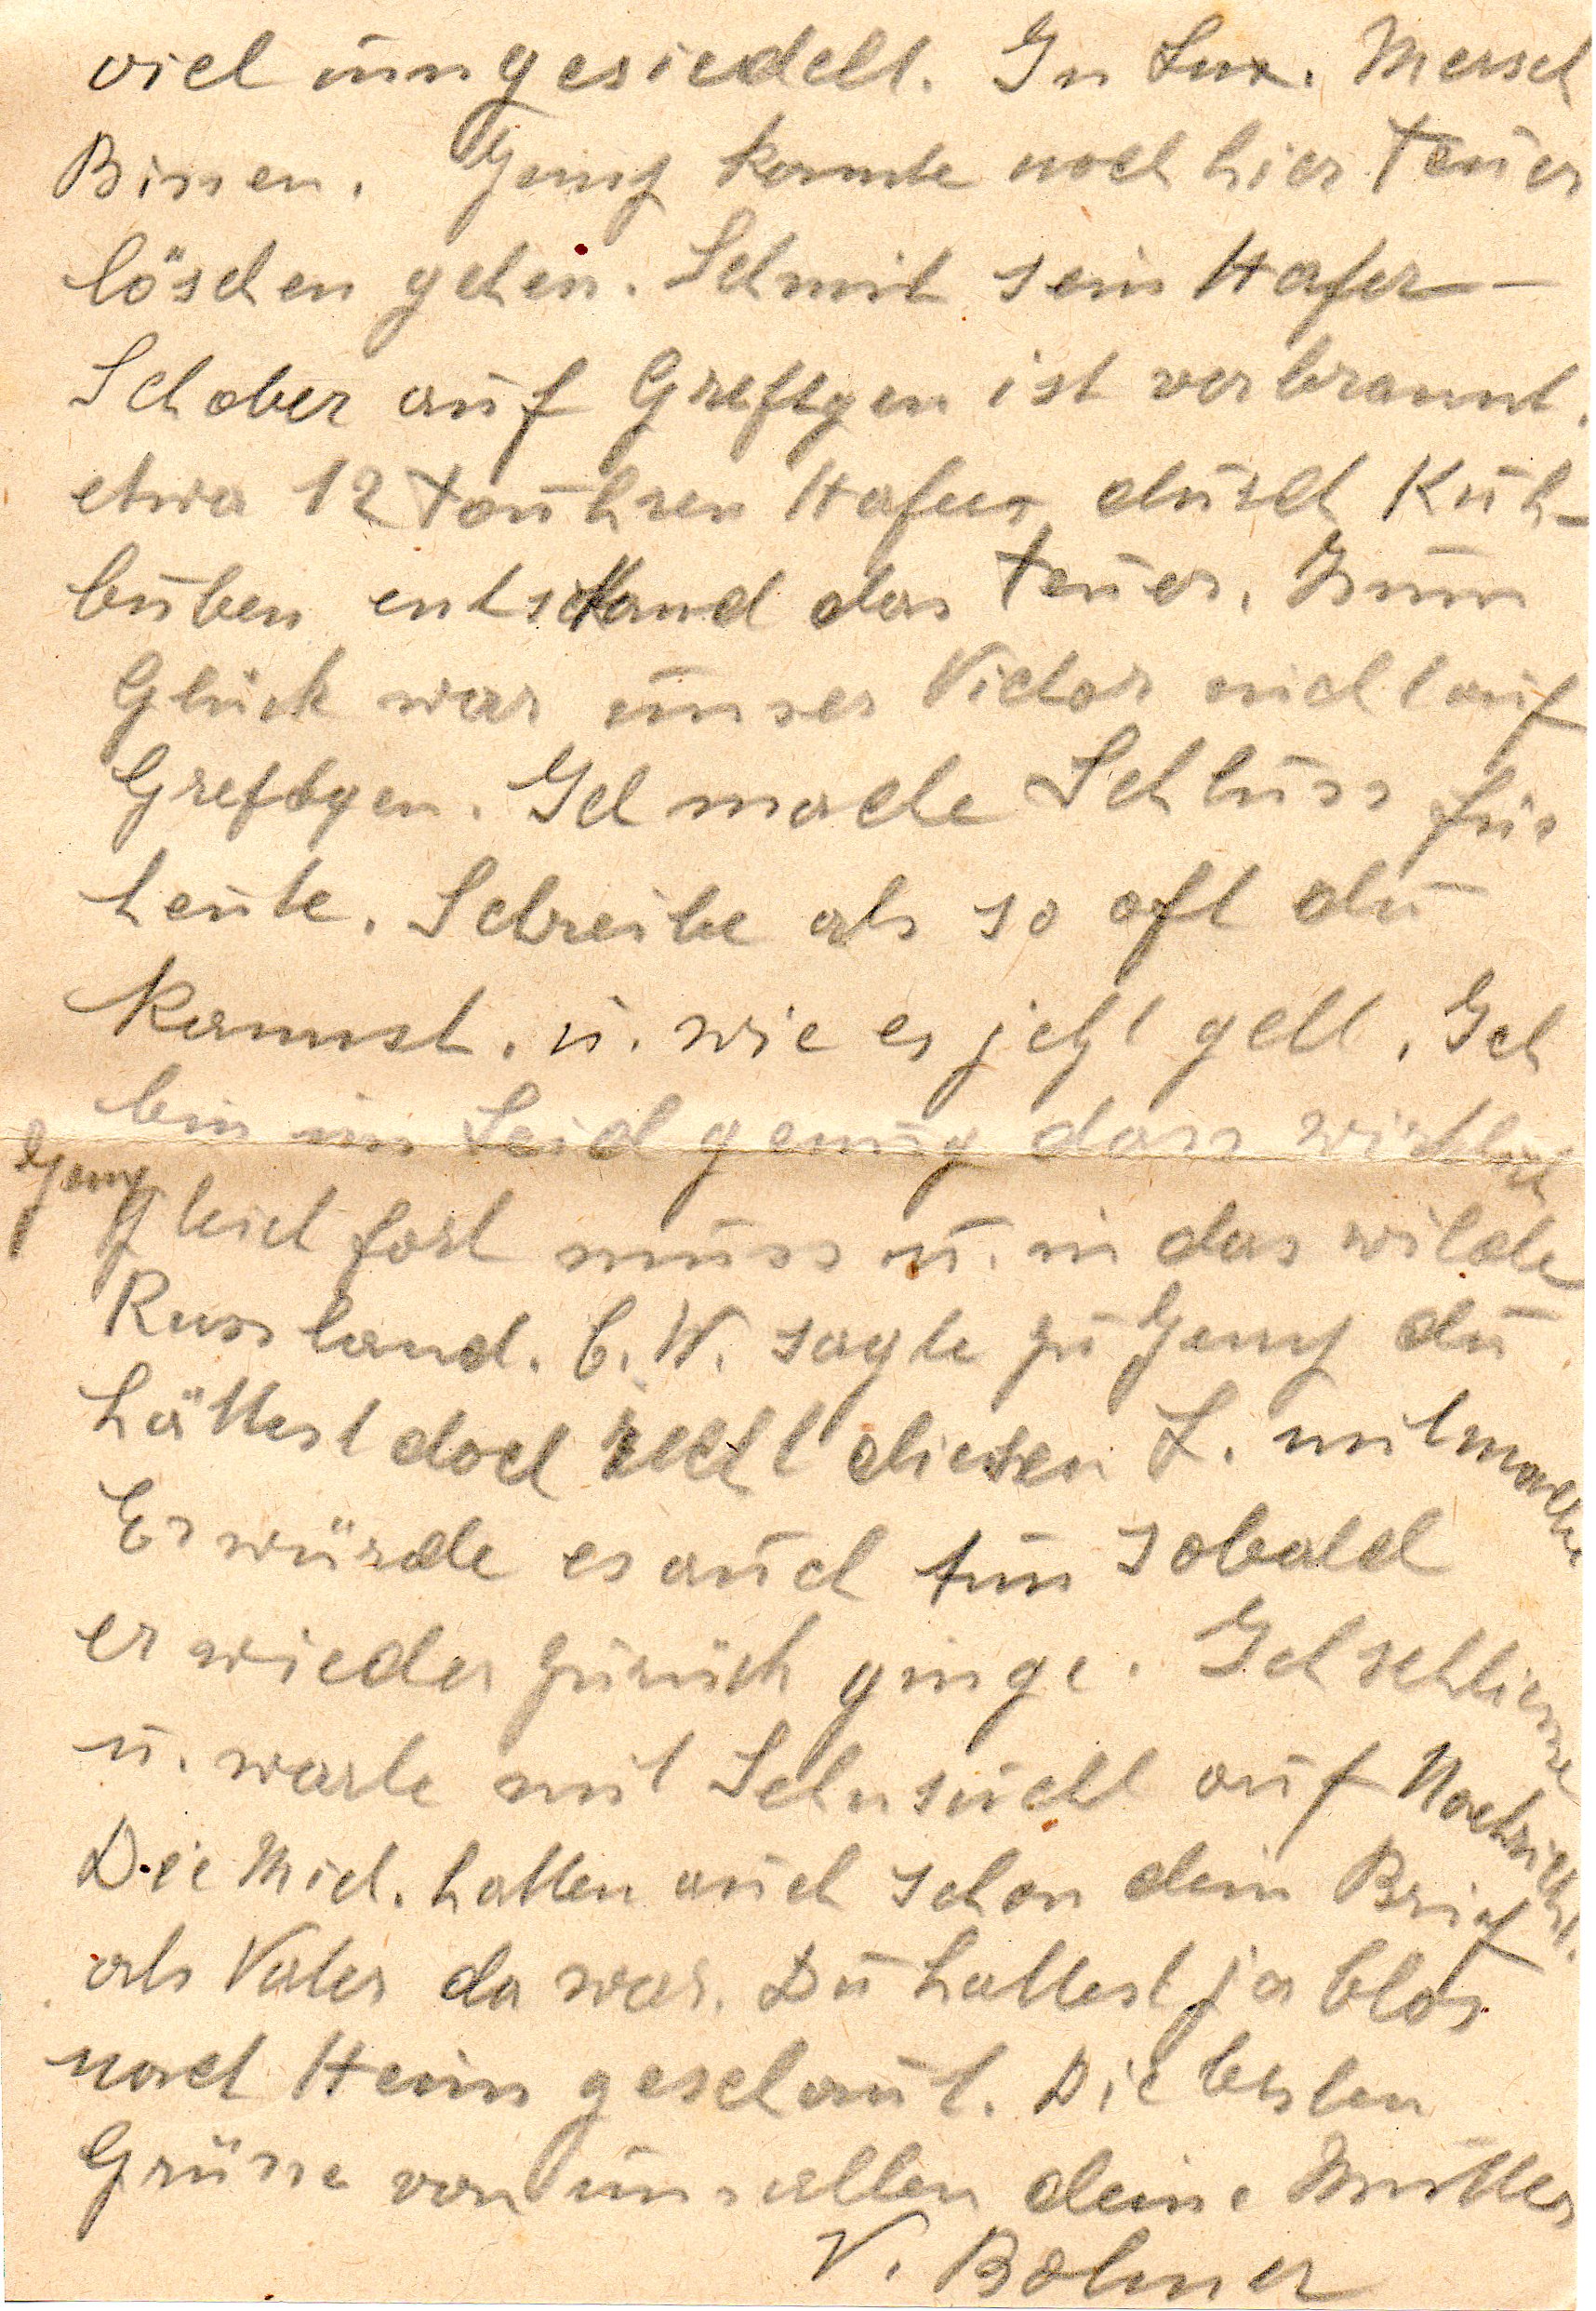 viel umgesiedelt. In Lux. Mersch
Bissen. Jemp konnte noch hier Feuer
löschen gehen. Schmit sein Hafer-
Schober auf Greftgen ist verbrannt.
etwa 12 Fouhren Hafer, durch Küh-
buben entstand das Feuer. Zum
Glück war unser Victor nicht auf
Greftgen. Ich mache Schluss für
heute. Schreibe als so oft du
kannst. u. wie es jetzt geht. Ich
bin im Leid genug dass wirklich
Jemp
gleich fort muss u. in das wilde
Russland. C. W. sagte zu Jemp du
hättest doch recht diesen L. mitmachen
Er würde es auch tun sobald
er wieder zurück ginge. Ich schliesse
u. warte mit Sehnsucht auf Nachricht.
Die Mich. hatten auch schon dein Brief
als Vater da war. Du hattest ja blos
nach Heim geschaut. Die besten
Grüsse von uns allen deine Mutter
V. Bohmer